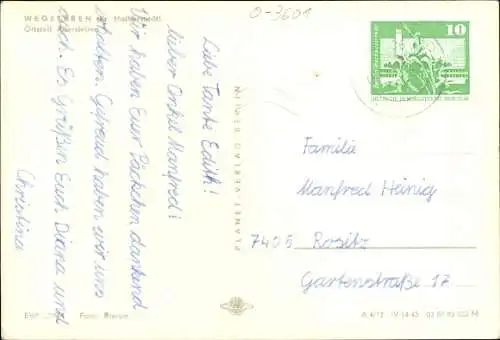 WEGELEBEN Kr. Halberstadt
Ortsteil Adersleben
o-3601
Liebe Tante Edith!
lieber Onkel Manfred!
Wir haben Euer Päckchen dankend
erhalten. Gefreut haben wir uns
auch. Es Grüßen Euch Diana und
Christina
PLANET-VERLAG BERLIN
10
DEUTSCHE DEMOKRATISCHE REPUBLIK
Familie
Manfred Heinig
7405 Rositz
Gartenstraße 17
Foto:
A 4/12 IV-14-45